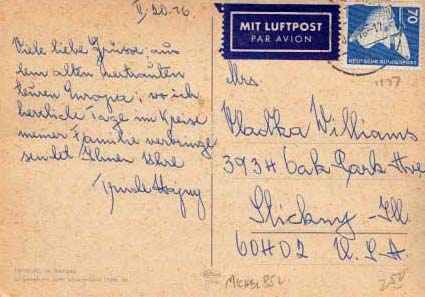 V, 20.76
Viele liebe Grüsse aus
dem alten vertrauten
Europa; wo ich
herrliche Tage im Kreise
meiner Familie verbringe
sendet Ihnen Ihre
MIT LUFTPOST
PAR AVION
70
DEUTSCHE BUNDESPOST
1177
Mrs.
Vladka Williams
3934 Oak Park Ave
Stickny - Ill.
60402 U.S.A.
MICHEL 852